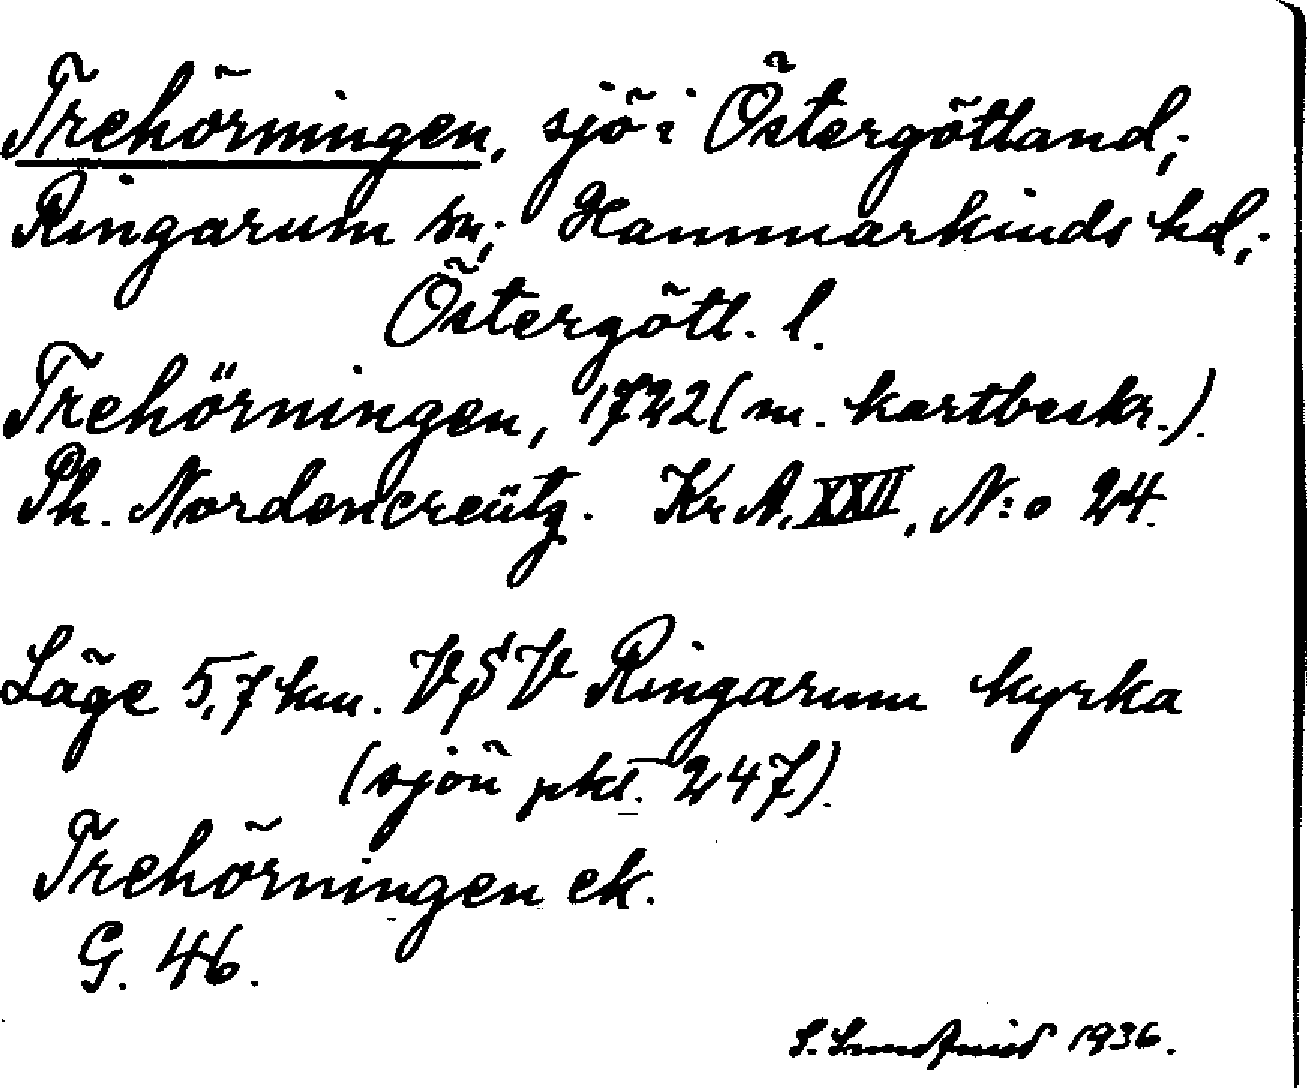 Trehörningen, sjö i Östergötland;
Ringarum sn; Hammarkinds hd,;
Östergötl. l.
Trehörningen, 1722 (m. kartbeskr.).
Ph. Nordencreütz. Kr A, XXII, N:o 24.
Läge 5,7 km. VSV Ringarum kyrka
(sjön pkt. 247).
Trehörningen ek.
G. 46.
S. 1936.